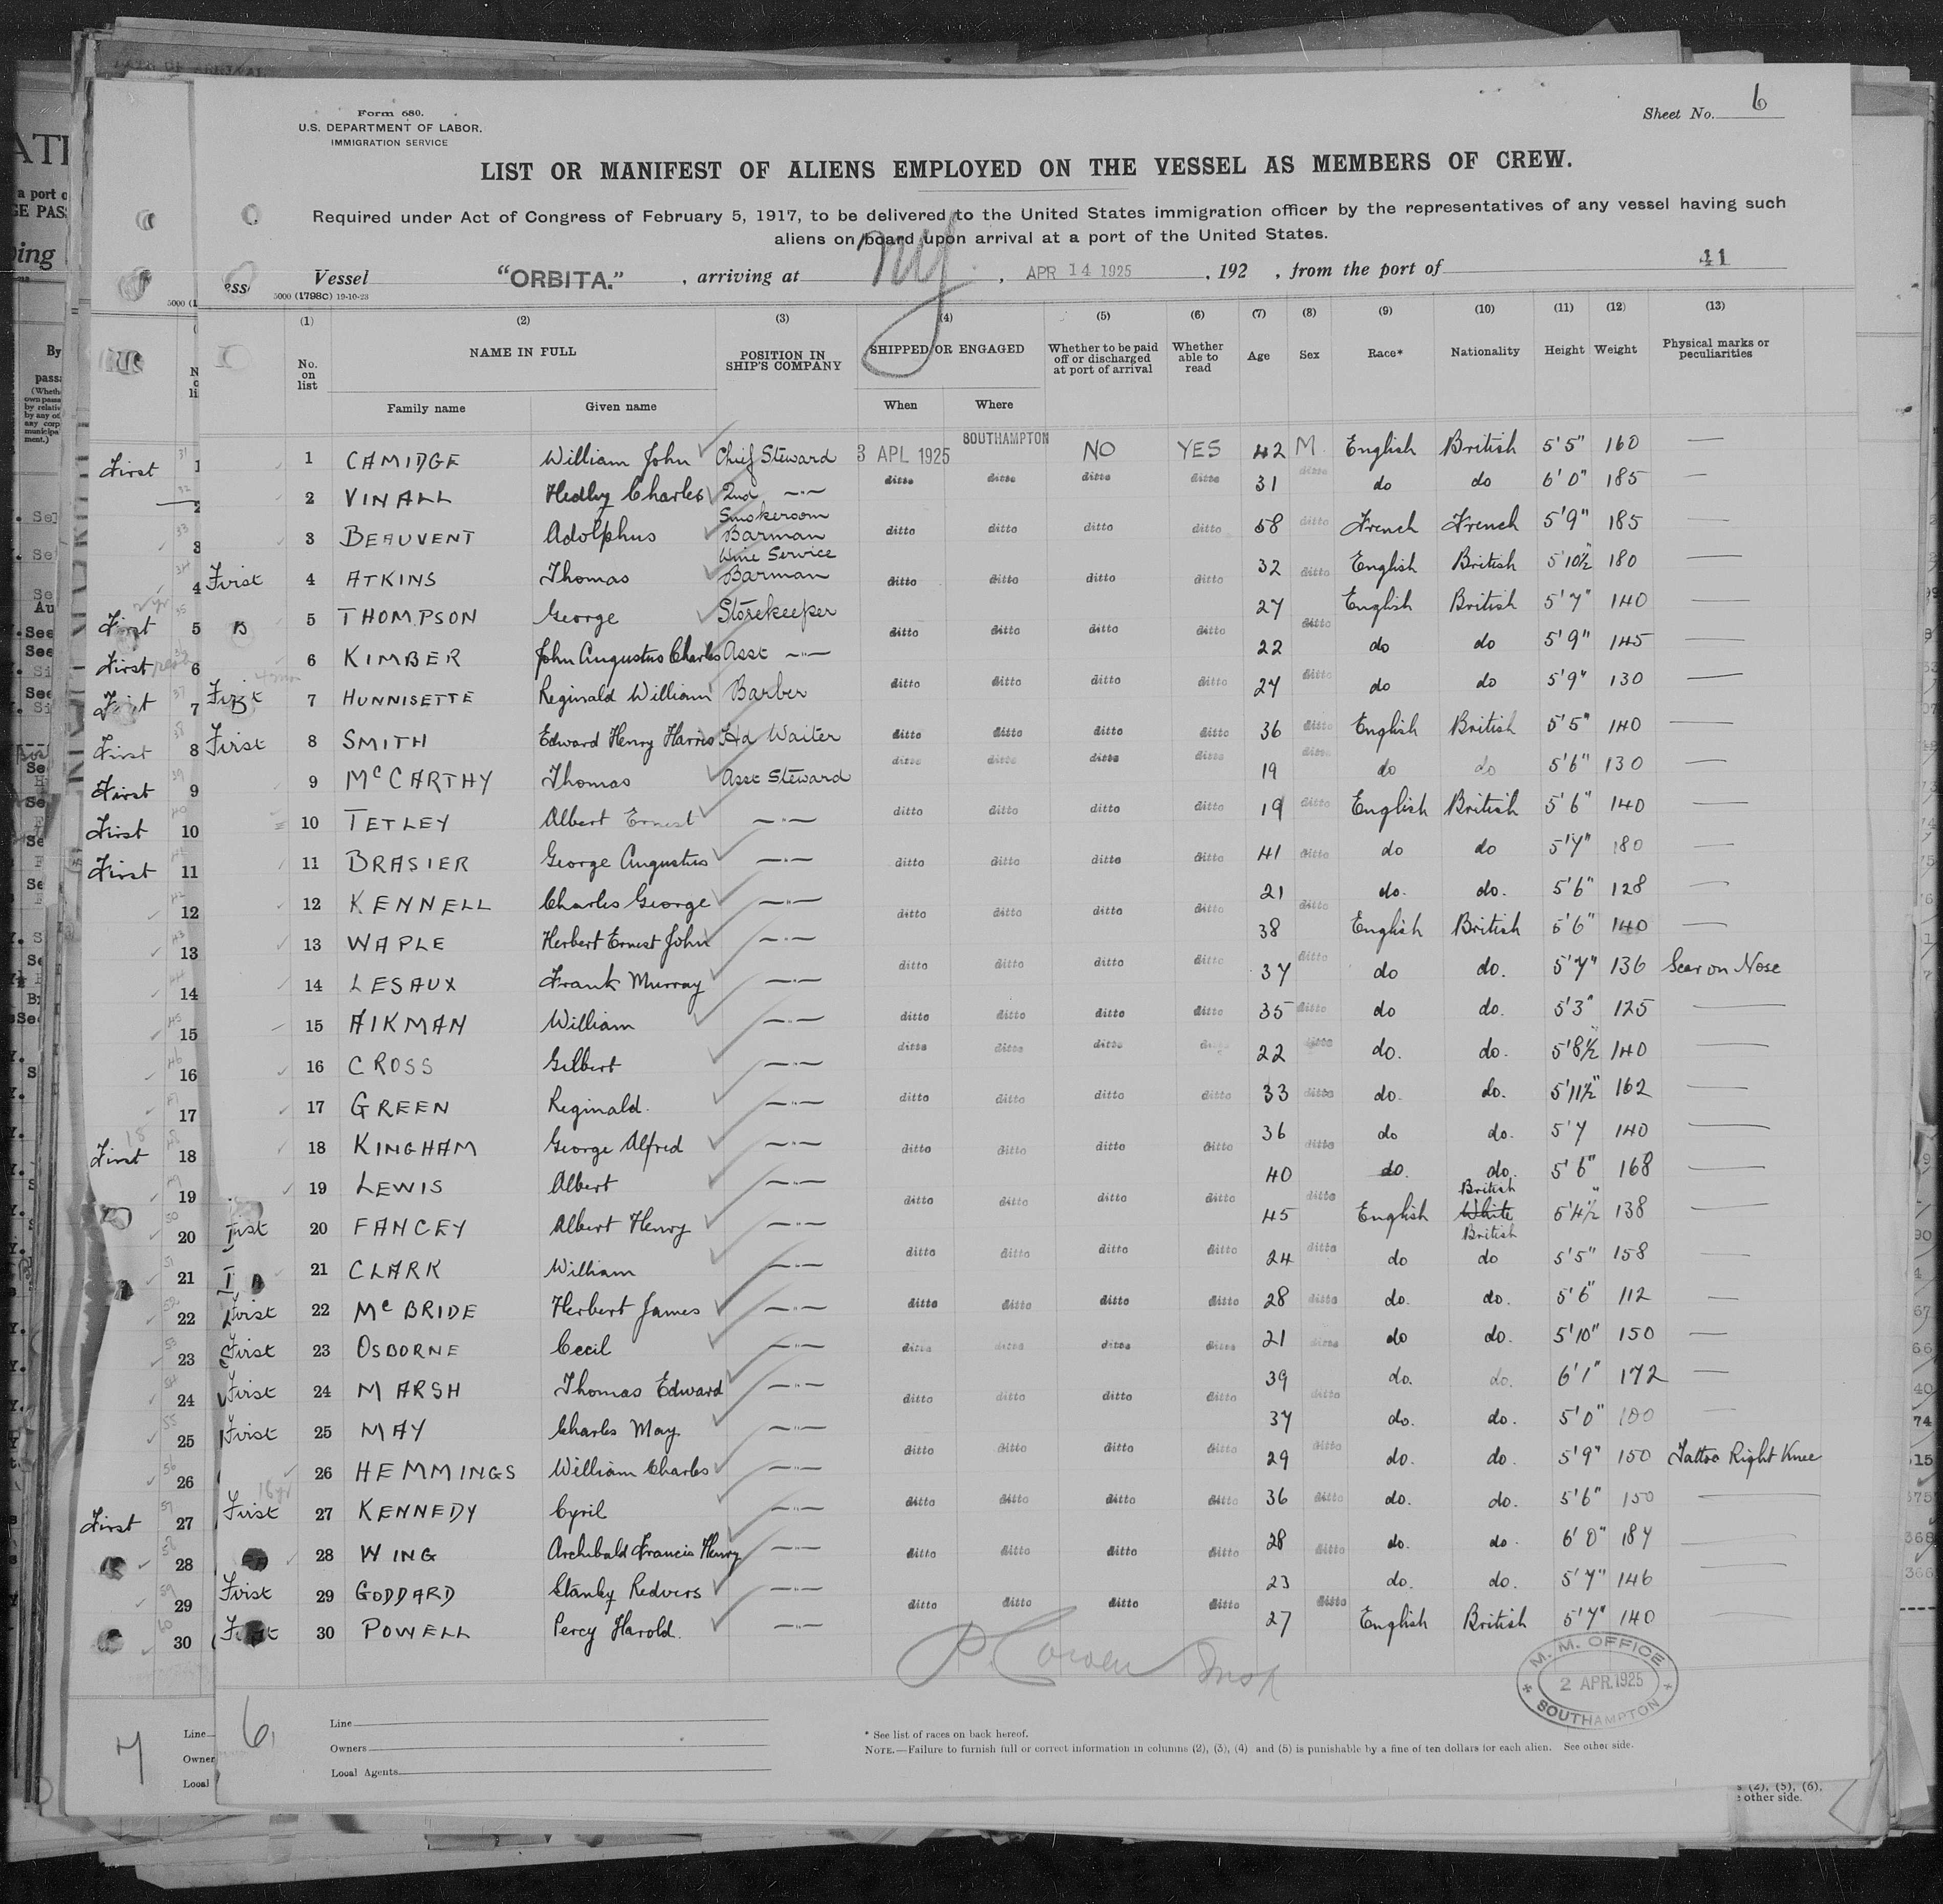 Form 680.
U.S. DEPARTMENT OF LABOR.
IMMIGRATION SERVICE
Sheet No. 6
LIST OR MANIFEST OF ALIENS EMPLOYED ON THE VESSEL AS MEMBERS OF CREW.
Required under Act of Congress of February 5, 1917, to be delivered to the United States immigration officer by the representatives of any vessel having such
aliens on board upon arrival at a port of the United States.
Vessel "ORBITA." , arriving at NY , APR 14 1925 , 192 , from the port of 41
5000 (1798C) 19-10-23
(1) (2) (3) (4) (5) (6) (7) (8) (9) (10) (11) (12) (13)
No. on list NAME IN FULL POSITION IN SHIP'S COMPANY SHIPPED OR ENGAGED Whether to be paid off or discharged at port of arrival Whether able to read Age Sex Race* Nationality Height Weight Physical marks or peculiarities
Family name Given name When Where
1 CAMIDGE William John Chief Steward 3 APL 1925 SOUTHAMPTON NO YES 42 M English British 5'5" 160 —
2 VINALL Hedley Charles 2nd —"— ditto ditto ditto ditto 31 ditto do do 6'0" 185 —
3 BEAUVENT Adolphus Smokeroom Barman ditto ditto ditto ditto 58 ditto French French 5'9" 185 —
First 4 ATKINS Thomas Wine Service Barman ditto ditto ditto ditto 32 ditto English British 5'10½" 180 —
5 THOMPSON George Storekeeper ditto ditto ditto ditto 27 ditto English British 5'7" 140 —
6 KIMBER John Augustus Charles Asst —"— 22 do do 5'9" 145 —
First 7 HUNNISETTE Reginald William Barber ditto ditto ditto ditto 24 ditto do do 5'9" 130 —
First 8 SMITH Edward Henry Harris Hd Waiter ditto ditto ditto ditto 36 ditto English British 5'5" 140 —
9 McCARTHY Thomas Asst Steward ditto ditto ditto ditto 19 ditto do do 5'6" 130 —
10 TETLEY Albert Ernest —"— ditto ditto ditto ditto 19 ditto English British 5'6" 140 —
11 BRASIER George Augustus —"— ditto ditto ditto ditto 41 ditto do do 5'7" 180 —
12 KENNELL Charles George —"— ditto ditto ditto ditto 21 ditto do. do. 5'6" 128 —
13 WAPLE Herbert Ernest John —"— 38 English British 5'6" 140 —
14 LESAUX Frank Murray —"— ditto ditto ditto ditto 37 ditto do do. 5'7" 136 Scar on Nose
15 AIKMAN William —"— ditto ditto ditto ditto 35 ditto do do. 5'3" 125 —
16 CROSS Gilbert —"— ditto ditto ditto ditto 22 ditto do. do. 5'8½" 140 —
17 GREEN Reginald. —"— ditto ditto ditto ditto 33 ditto do. do. 5'11½" 162 —
18 KINGHAM George Alfred —"— ditto ditto ditto ditto 36 ditto do do. 5'7 140 —
19 LEWIS Albert —"— 40 do. do. 5'6" 168 —
20 FANCEY Albert Henry —"— ditto ditto ditto ditto 45 ditto English British White British 5'4½" 138 —
21 CLARK William —"— ditto ditto ditto ditto 24 ditto do do 5'5" 158 —
First 22 McBRIDE Herbert James —"— ditto ditto ditto ditto 28 ditto do. do. 5'6" 112 —
First 23 OSBORNE Cecil —"— ditto ditto ditto ditto 21 ditto do do. 5'10" 150 —
First 24 MARSH Thomas Edward —"— ditto ditto ditto ditto 39 ditto do. do. 6'1" 172 —
First 25 MAY Charles May. —"— 37 do. do. 5'0" 100 —
26 HEMMINGS William Charles —"— ditto ditto ditto ditto 29 ditto do. do. 5'9" 150 Tattoo Right Knee
First 27 KENNEDY Cyril —"— ditto ditto ditto ditto 36 ditto do. do. 5'6" 150 —
28 WING Archibald Francis Henry —"— ditto ditto ditto ditto 28 ditto do. do. 6'0" 187 —
First 29 GODDARD Stanley Redvers —"— 23 do. do. 5'7" 146 —
First 30 POWELL Percy Harold. —"— ditto ditto ditto ditto 27 ditto English British 5'7" 140 —
M. M. OFFICE
2 APR. 1925
SOUTHAMPTON
6
Line
Owners
Local Agents
* See list of races on back hereof.
NOTE.—Failure to furnish full or correct information in columns (2), (3), (4) and (5) is punishable by a fine of ten dollars for each alien. See other side.
7
Line
Owner
Local
s (2), (5), (6).
other side.